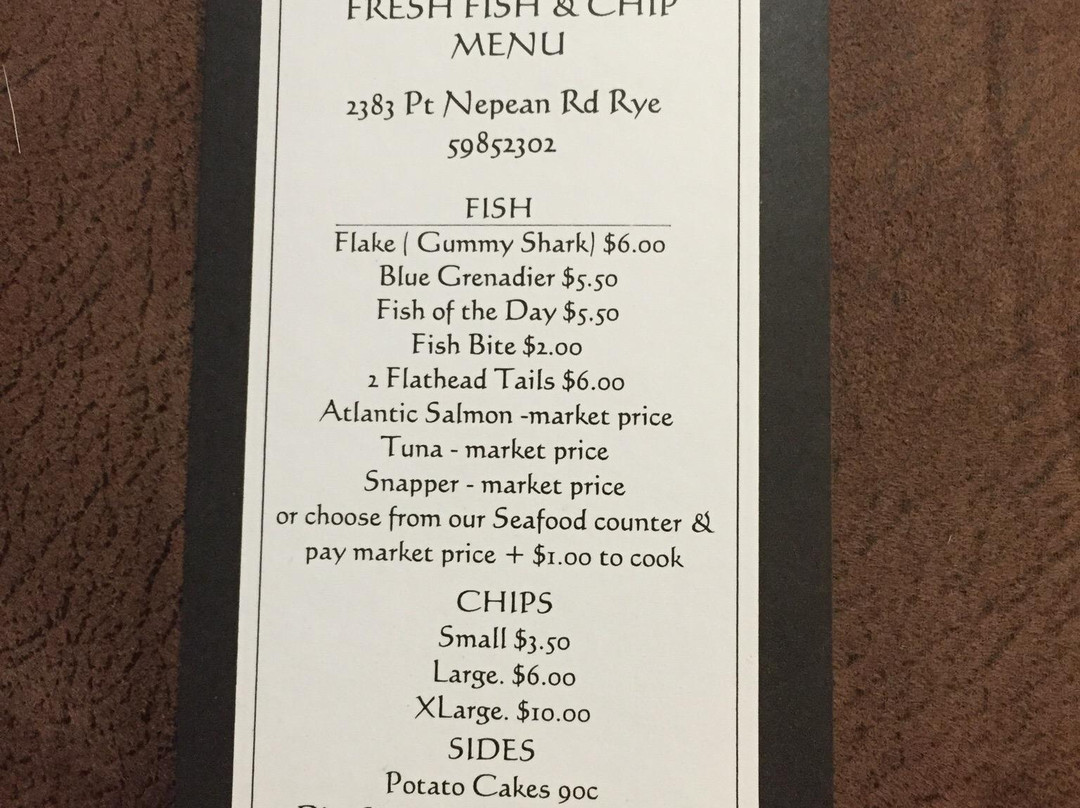 FRESH FISH & CHIP
MENU
2383 Pt Nepean Rd Rye
59852302
FISH
Flake ( Gummy Shark) $6.00
Blue Grenadier $5.50
Fish of the Day $5.50
Fish Bite $2.00
2 Flathead Tails $6.00
Atlantic Salmon -market price
Tuna - market price
Snapper - market price
or choose from our Seafood counter &
pay market price + $1.00 to cook
CHIPS
Small $3.50
Large. $6.00
XLarge. $10.00
SIDES
Potato Cakes 90c